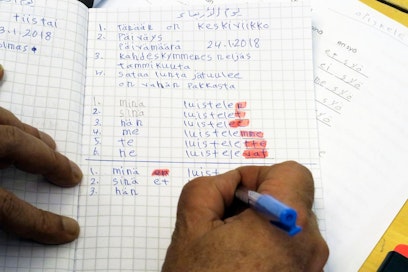 tiistai
3.1.2018
olmas
يوم الأربعاء
1. tänään on keskiviikko
2. Päiväys
Päivämäärä 24.1.2018
3. kahdeskymmenes neljäs
tammikuuta
4. Sataa lunta jatuulee
on vähän pakkasta
1. minä luistelen
2. sinä luistelet
3. hän luistelee
4. me luistelemme
5. te luistelette
6. he luistelevat
1. minä en luist
2. sinä et
3. hän